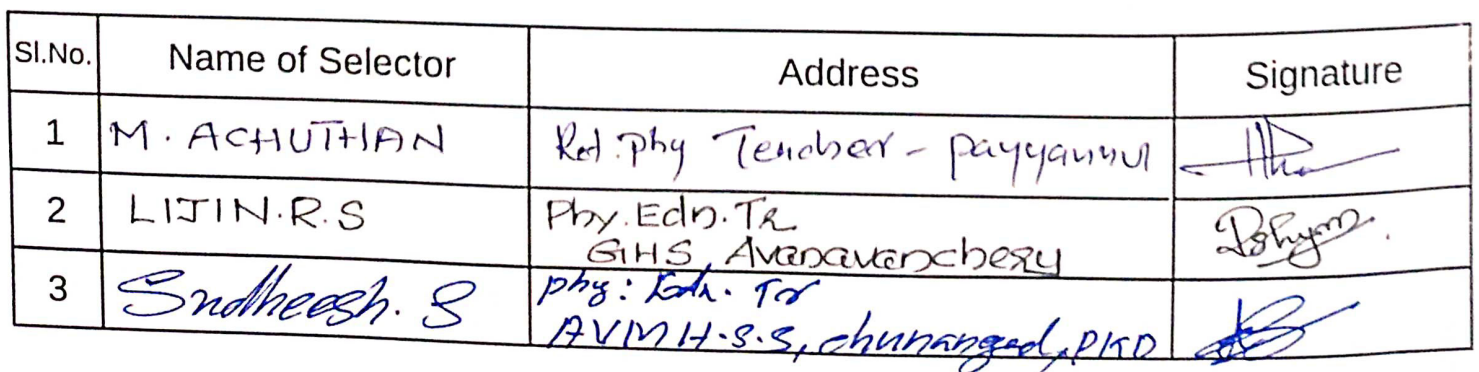 Sl.No. Name of Selector Address Signature
1 M. ACHUTHAN Ret. Phy Teacher - Payyannur
2 LIJIN.R.S Phy.Edn.TR
GHS, Avanavanchery
3 Sudheesh. S Phy: Edn. Tr
AVM H.S.S, chunangad, PKD